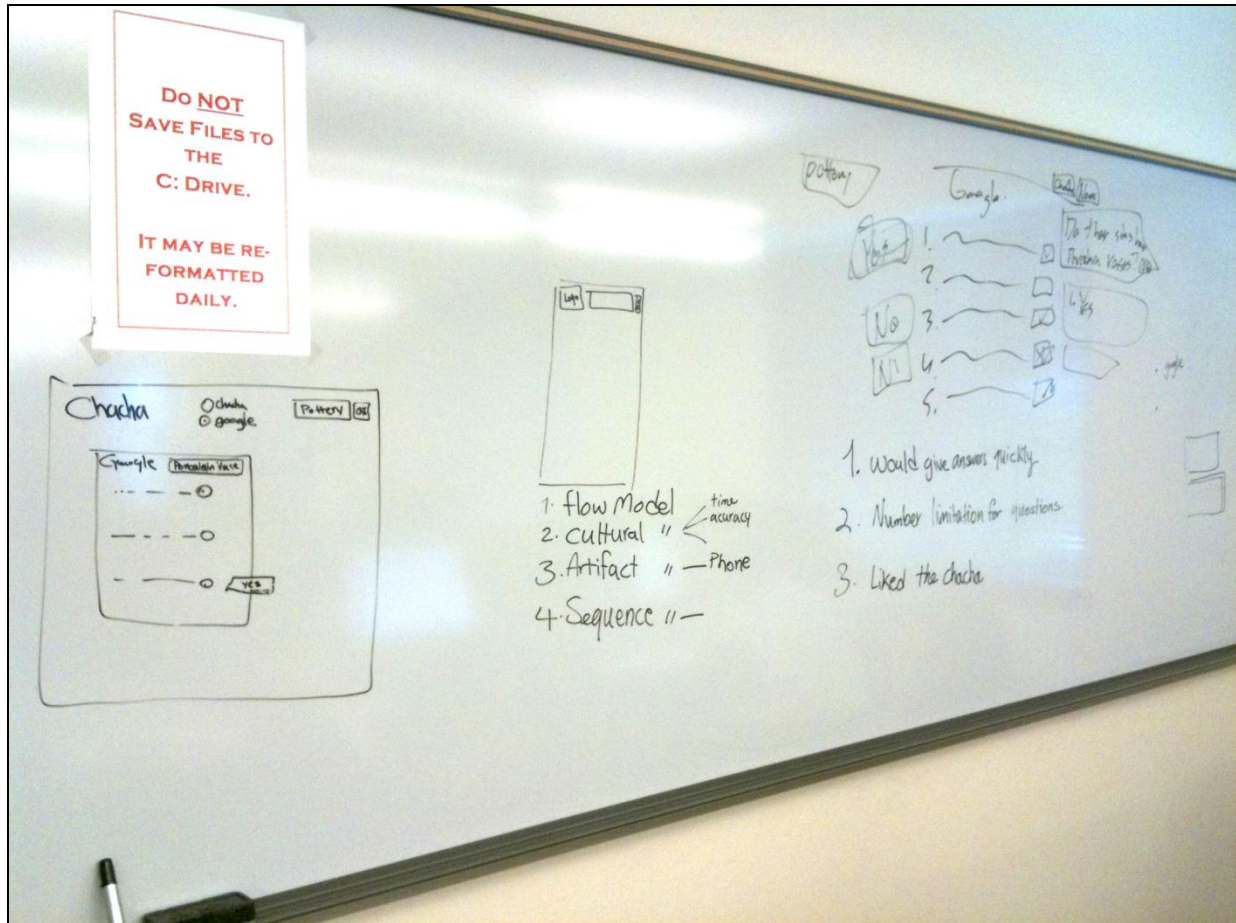 DO NOT
SAVE FILES TO
THE
C: DRIVE.
IT MAY BE RE-
FORMATTED
DAILY.
Chacha
chacha
google
Pottery
OK
Google
Porcelain Vase
yes
Logo
1. flow Model
2. cultural " time
acuracy
3. Artifact " — Phone
4. Sequence " —
pottery
Google.
Yes
No
No
1.
2.
3.
4.
5.
Do these sites have
Porcelain Vases?
1. Yes
google
1. Would give answers quickly
2. Number limitation for questions
3. Liked the chacha